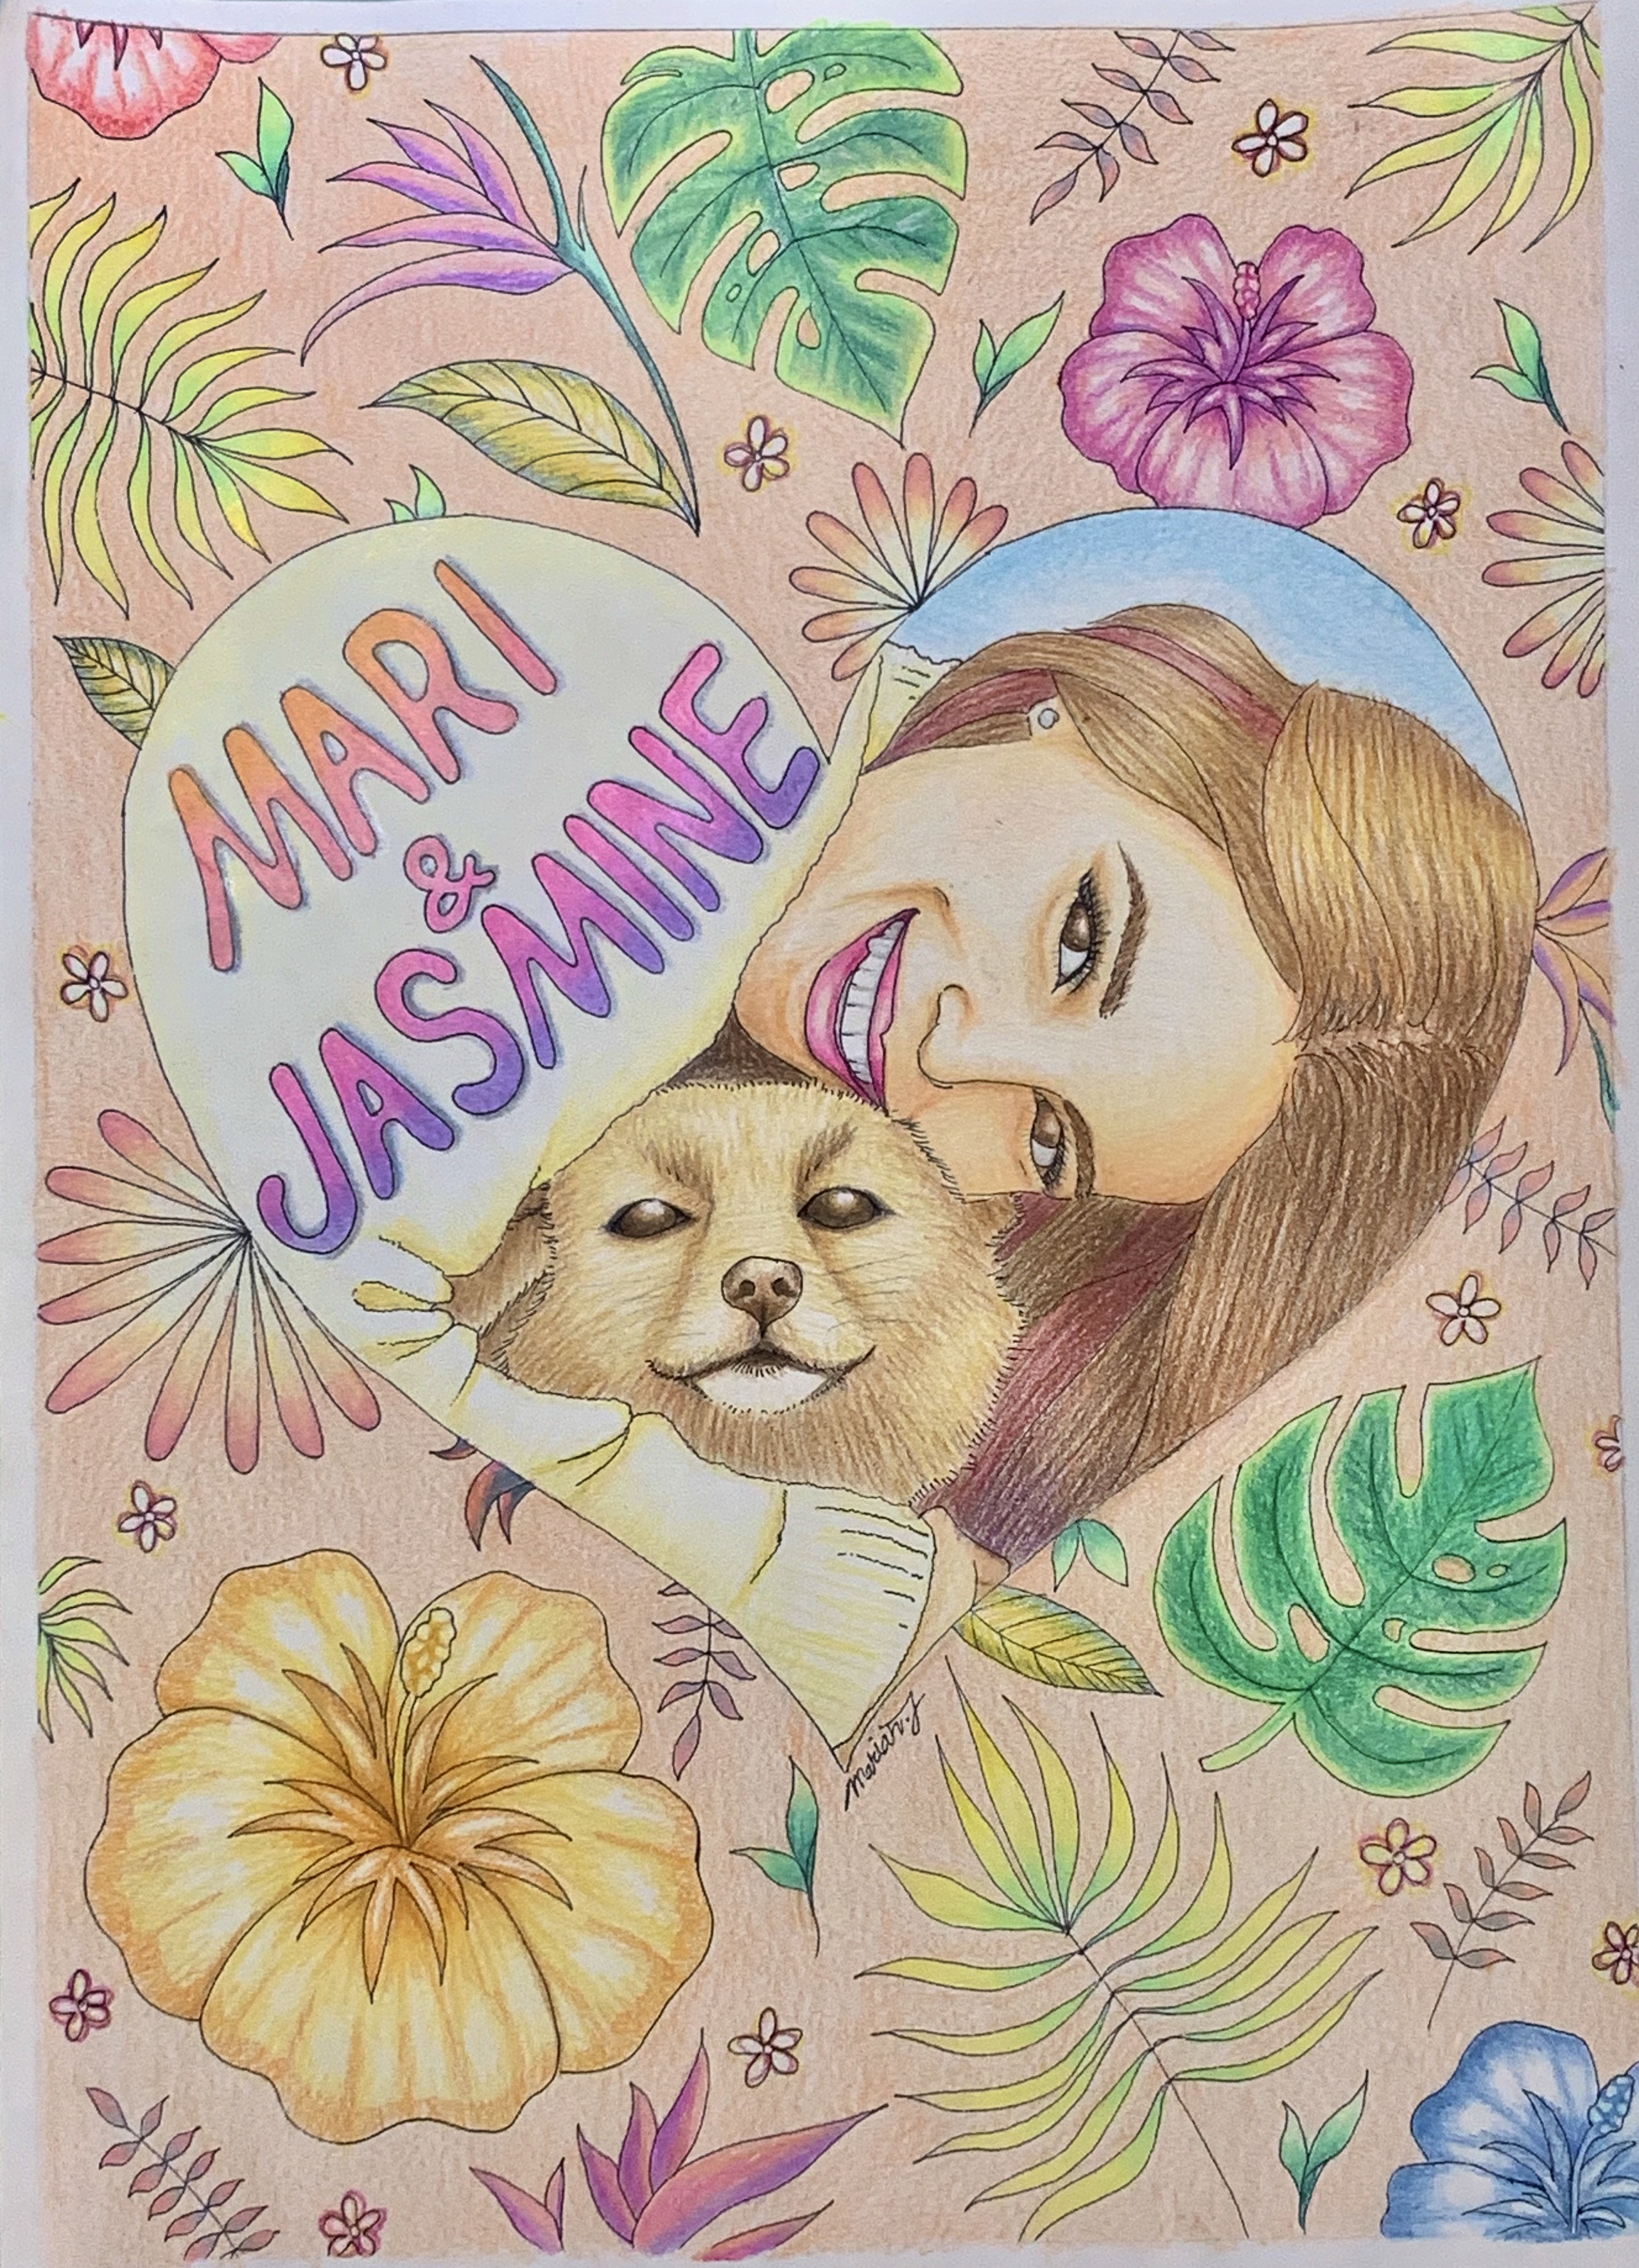 MARI
&
JASMINE
Marian.J